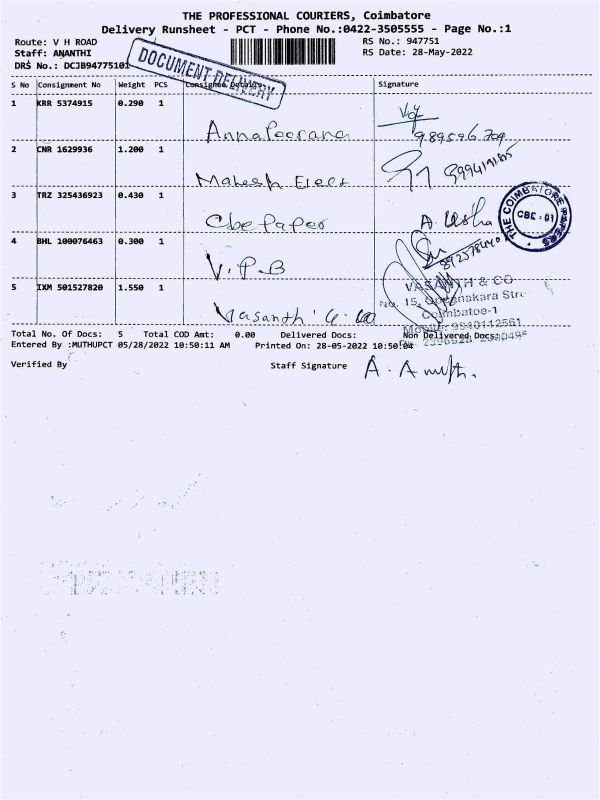 THE PROFESSIONAL COURIERS, Coimbatore
Delivery Runsheet - PCT - Phone No.:0422-3505555 - Page No.:1
Route: V H ROAD
RS No.: 947751
Staff: ANANTHI
RS Date: 28-May-2022
DRS No.: DCJB94775101
DOCUMENT DELIVERY
S No Consignment No Weight PCS Consignee Details Signature
1 KRR 5374915 0.290 1
Annapoorana
2 CNR 1629936 1.200 1
Mahesh Elect
3 TRZ 325436923 0.430 1
Cbe Paper A. Usha
THE COIMBATORE PAPERS
CBE - 01
4 BHL 100076463 0.300 1
V.P.B
5 IXM 501527820 1.550 1
Vasanth & co
VASANTH & CO
No. 15,
Coimbatoe-1
Mobile: 9940112561
Total No. Of Docs: 5 Total COD Amt: 0.00 Delivered Docs: Non Delivered Docs:
Entered By :MUTHUPCT 05/28/2022 10:50:11 AM Printed On: 28-05-2022 10:50:04
Verified By Staff Signature